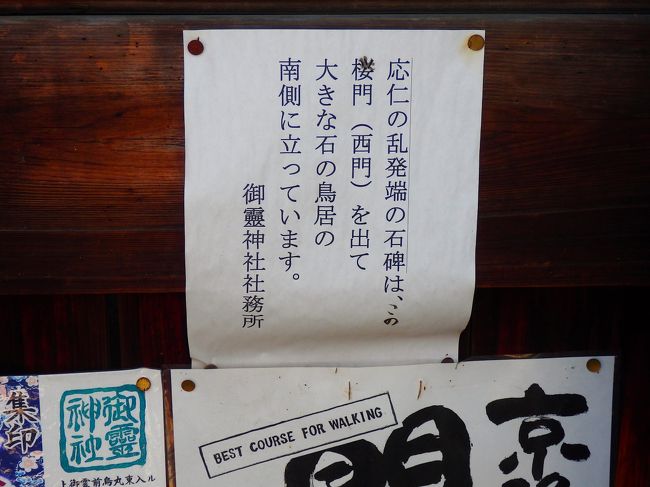 応仁の乱発端の石碑は、この
楼門（西門）を出て
大きな石の鳥居の
南側に立っています。
御靈神社社務所
集印
御靈
神社
上御霊前烏丸東入ル
BEST COURSE FOR WALKING
京